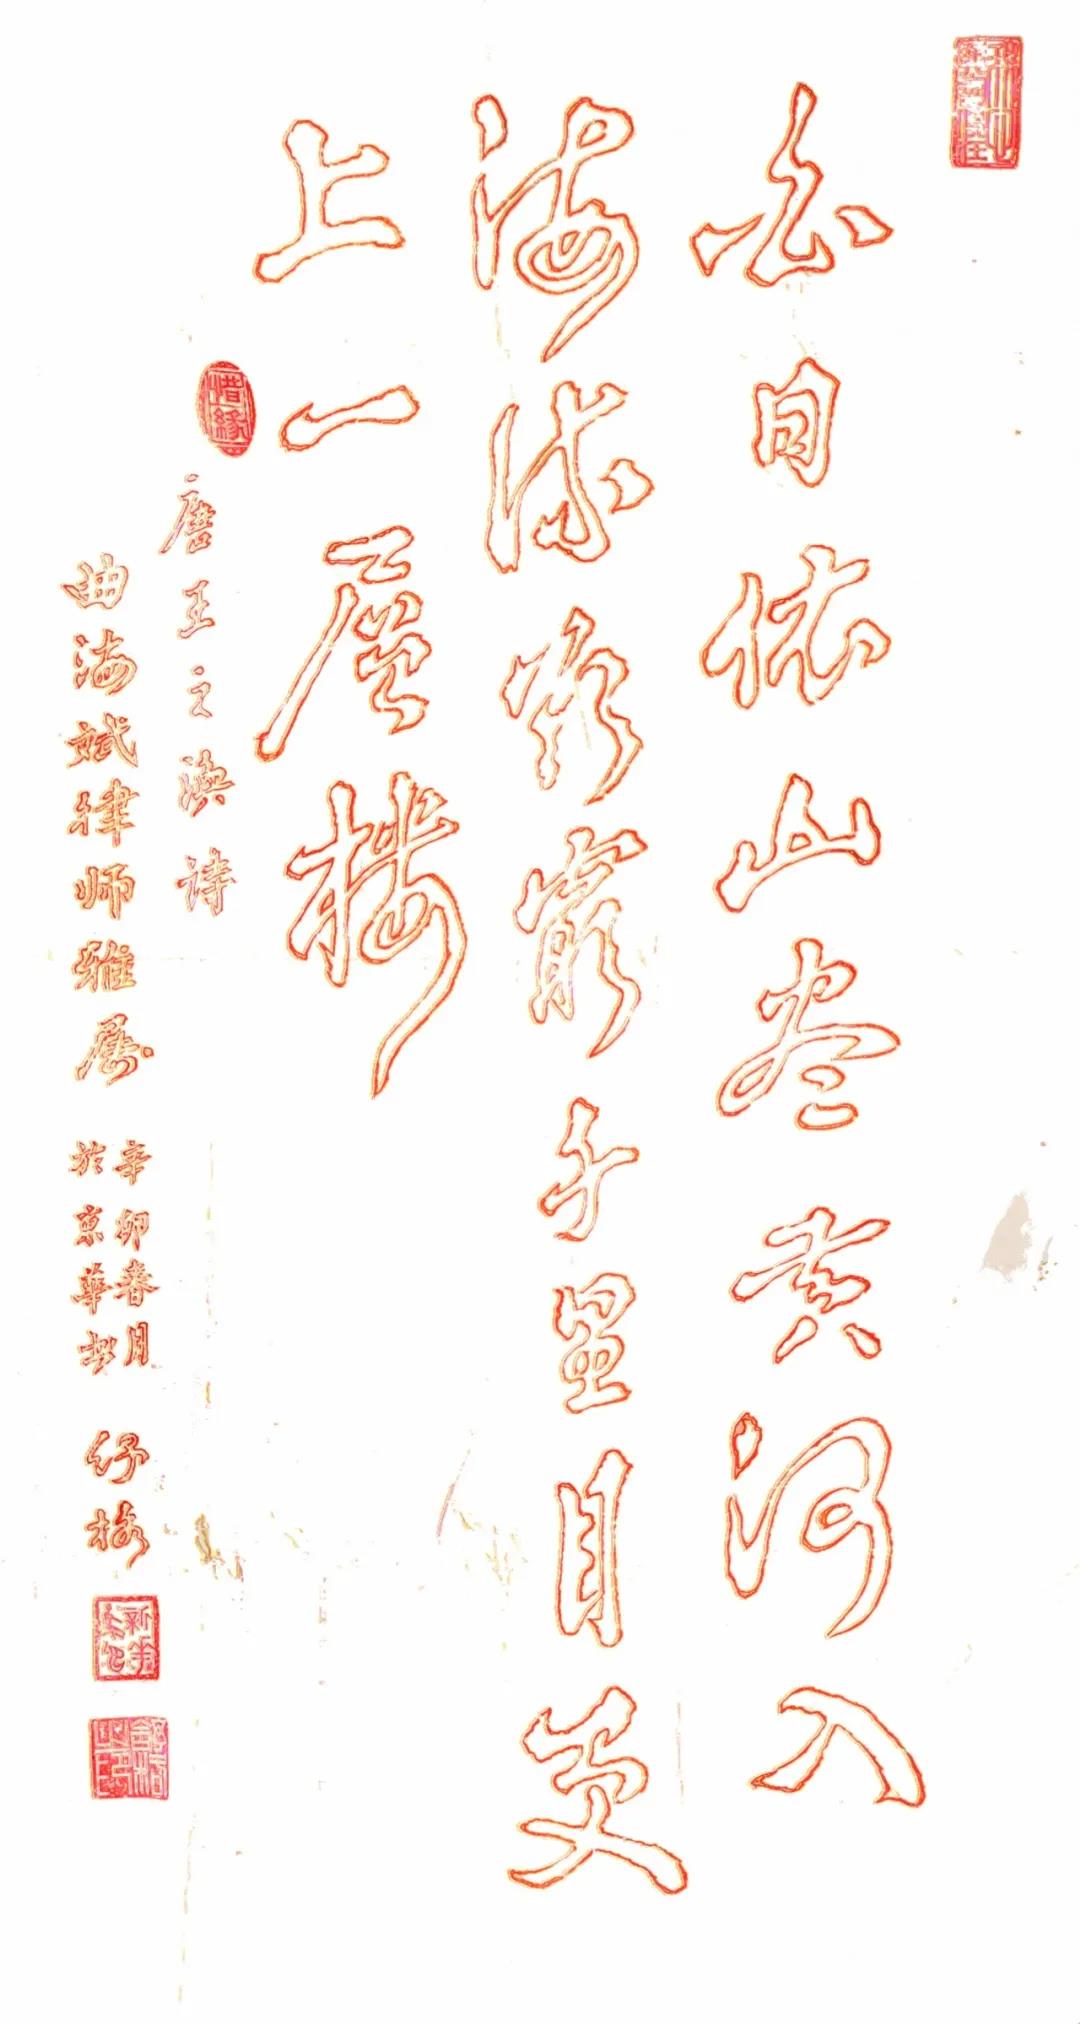 白日依山尽黄河入
海流欲窮千里目更
上一层楼
惜緣
唐王之涣诗
曲海斌律师雅属
辛卯春月
於京華